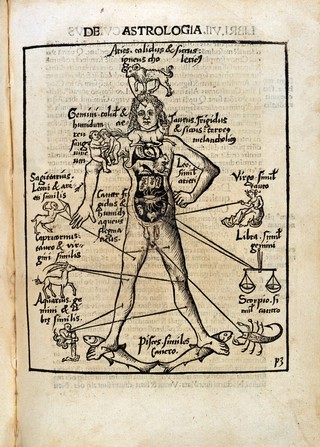 DE ASTROLOGIA
Aries. calidus & siccus:
igneus cho lericꝰ
Gemini. calid⁹ &
humidum ae
reum
sangui
neum
Taurus. frigidus
& siccus: terreꝰ
melancholicꝰ
Leo.
simil
arieti
Sagitarius.
Leoni & ari
eti similis
Cancer fri
gidus &
humidꝰ
aqueus
flegma
ticus.
Virgo. simil
tauro
Capricornus:
tauro & vir
gini similis
Libra. simil
gemini
Aquarius. ge
mini & li
bre similis.
Scorpio. si
mil cancro
Pisces. similes
Cancro.
P3